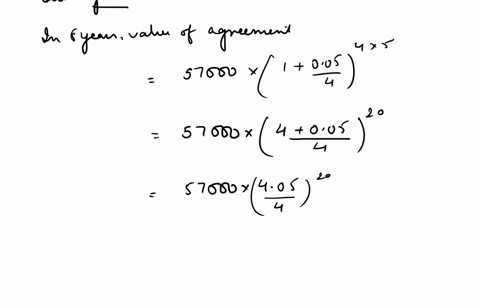 In 5 years, value of agreement
= 57000 × (1 + 0.05/4)^4×5
= 57000 × (4 + 0.05/4)^20
= 57000 × (4.05/4)^20